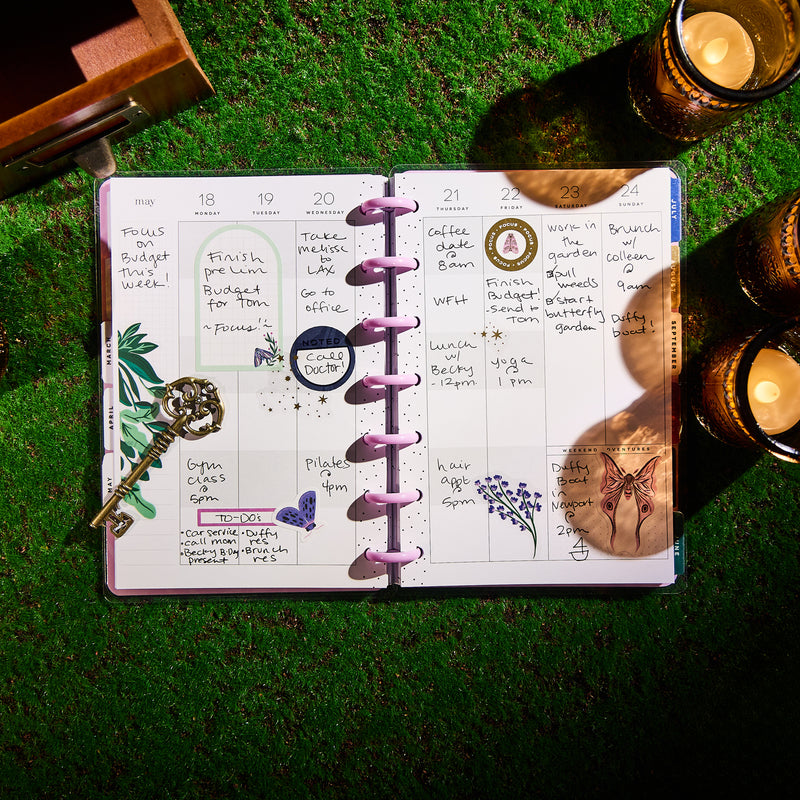 may
18
MONDAY
19
TUESDAY
20
WEDNESDAY
Focus
on
Budget
this
week!
Finish
prelim
Budget
for Tom
~Focus!~
Take
melissa
to
LAX
Go to
office
NOTED
Call
Doctor!
Gym
class
@
5pm
Pilates
@
4pm
TO-DO's
•Car service
•call mom
•Becky B-Day
present
•Duffy
res
•Brunch
res
MARCH
APRIL
MAY
21
THURSDAY
22
FRIDAY
23
SATURDAY
24
SUNDAY
Coffee
date
@
8am
WFH
Lunch
w/
Becky
-12pm
hair
appt
@
5pm
FOCUS • FOCUS • FOCUS • FOCUS •
Finish
Budget!
-Send to
Tom
yoga
@
1pm
work in
the
garden
pull
weeds
start
butterfly
garden
WEEKEND ADVENTURES
Duffy
Boat
in
Newport
@
2pm
Brunch
w/
colleen
@
9am
Duffy
boat!
JULY
SEPTEMBER
JUNE